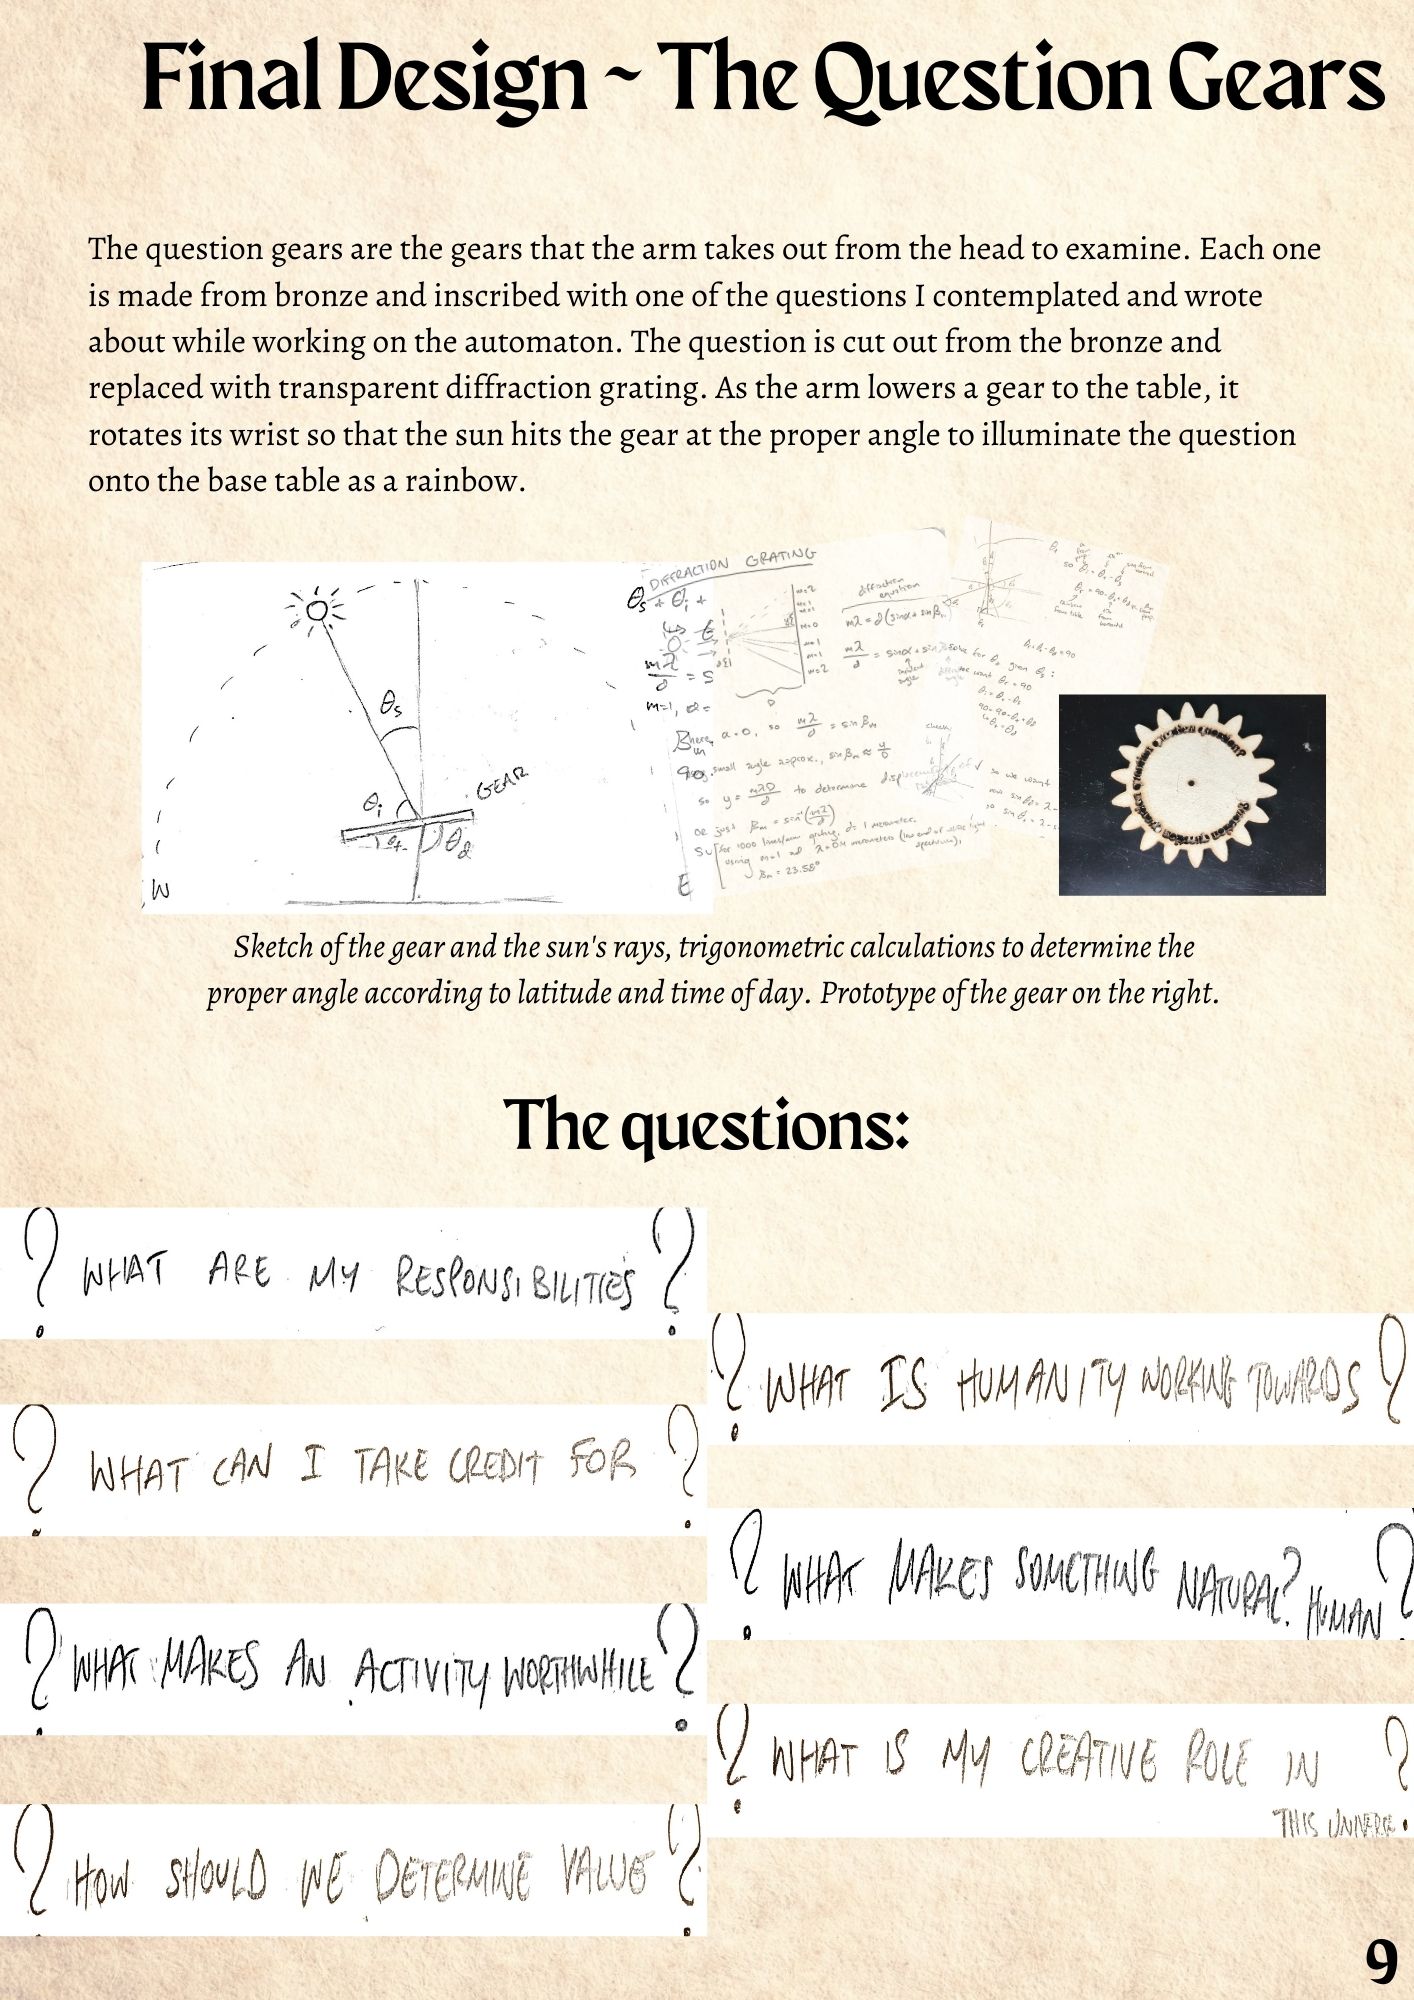 Final Design ~ The Question Gears
The question gears are the gears that the arm takes out from the head to examine. Each one
is made from bronze and inscribed with one of the questions I contemplated and wrote
about while working on the automaton. The question is cut out from the bronze and
replaced with transparent diffraction grating. As the arm lowers a gear to the table, it
rotates its wrist so that the sun hits the gear at the proper angle to illuminate the question
onto the base table as a rainbow.
θs
θi
GEAR
θd
W
E
DIFFRACTION GRATING
θs + θi +
m=2
m=1
m=0
m=1
m=2
D
diffraction
equation
mλ = d(sinα + sinβm)
α = 0, so mλ/d = sinβm
small angle approx., sinβm ≈ y/D
so y = mλD/d to determine displacement
or just βm = sin⁻¹(mλ/d)
for 1000 lines/mm grating, d = 1 micrometer.
βm = 23.58°
Sketch of the gear and the sun's rays, trigonometric calculations to determine the
proper angle according to latitude and time of day. Prototype of the gear on the right.
The questions:
? WHAT ARE MY RESPONSIBILITIES ?
? WHAT IS HUMANITY WORKING TOWARDS ?
? WHAT CAN I TAKE CREDIT FOR ?
? WHAT MAKES SOMETHING NATURAL? HUMAN ?
? WHAT MAKES AN ACTIVITY WORTHWHILE ?
? WHAT IS MY CREATIVE ROLE IN ?
THIS UNIVERSE
? HOW SHOULD WE DETERMINE VALUE ?
9